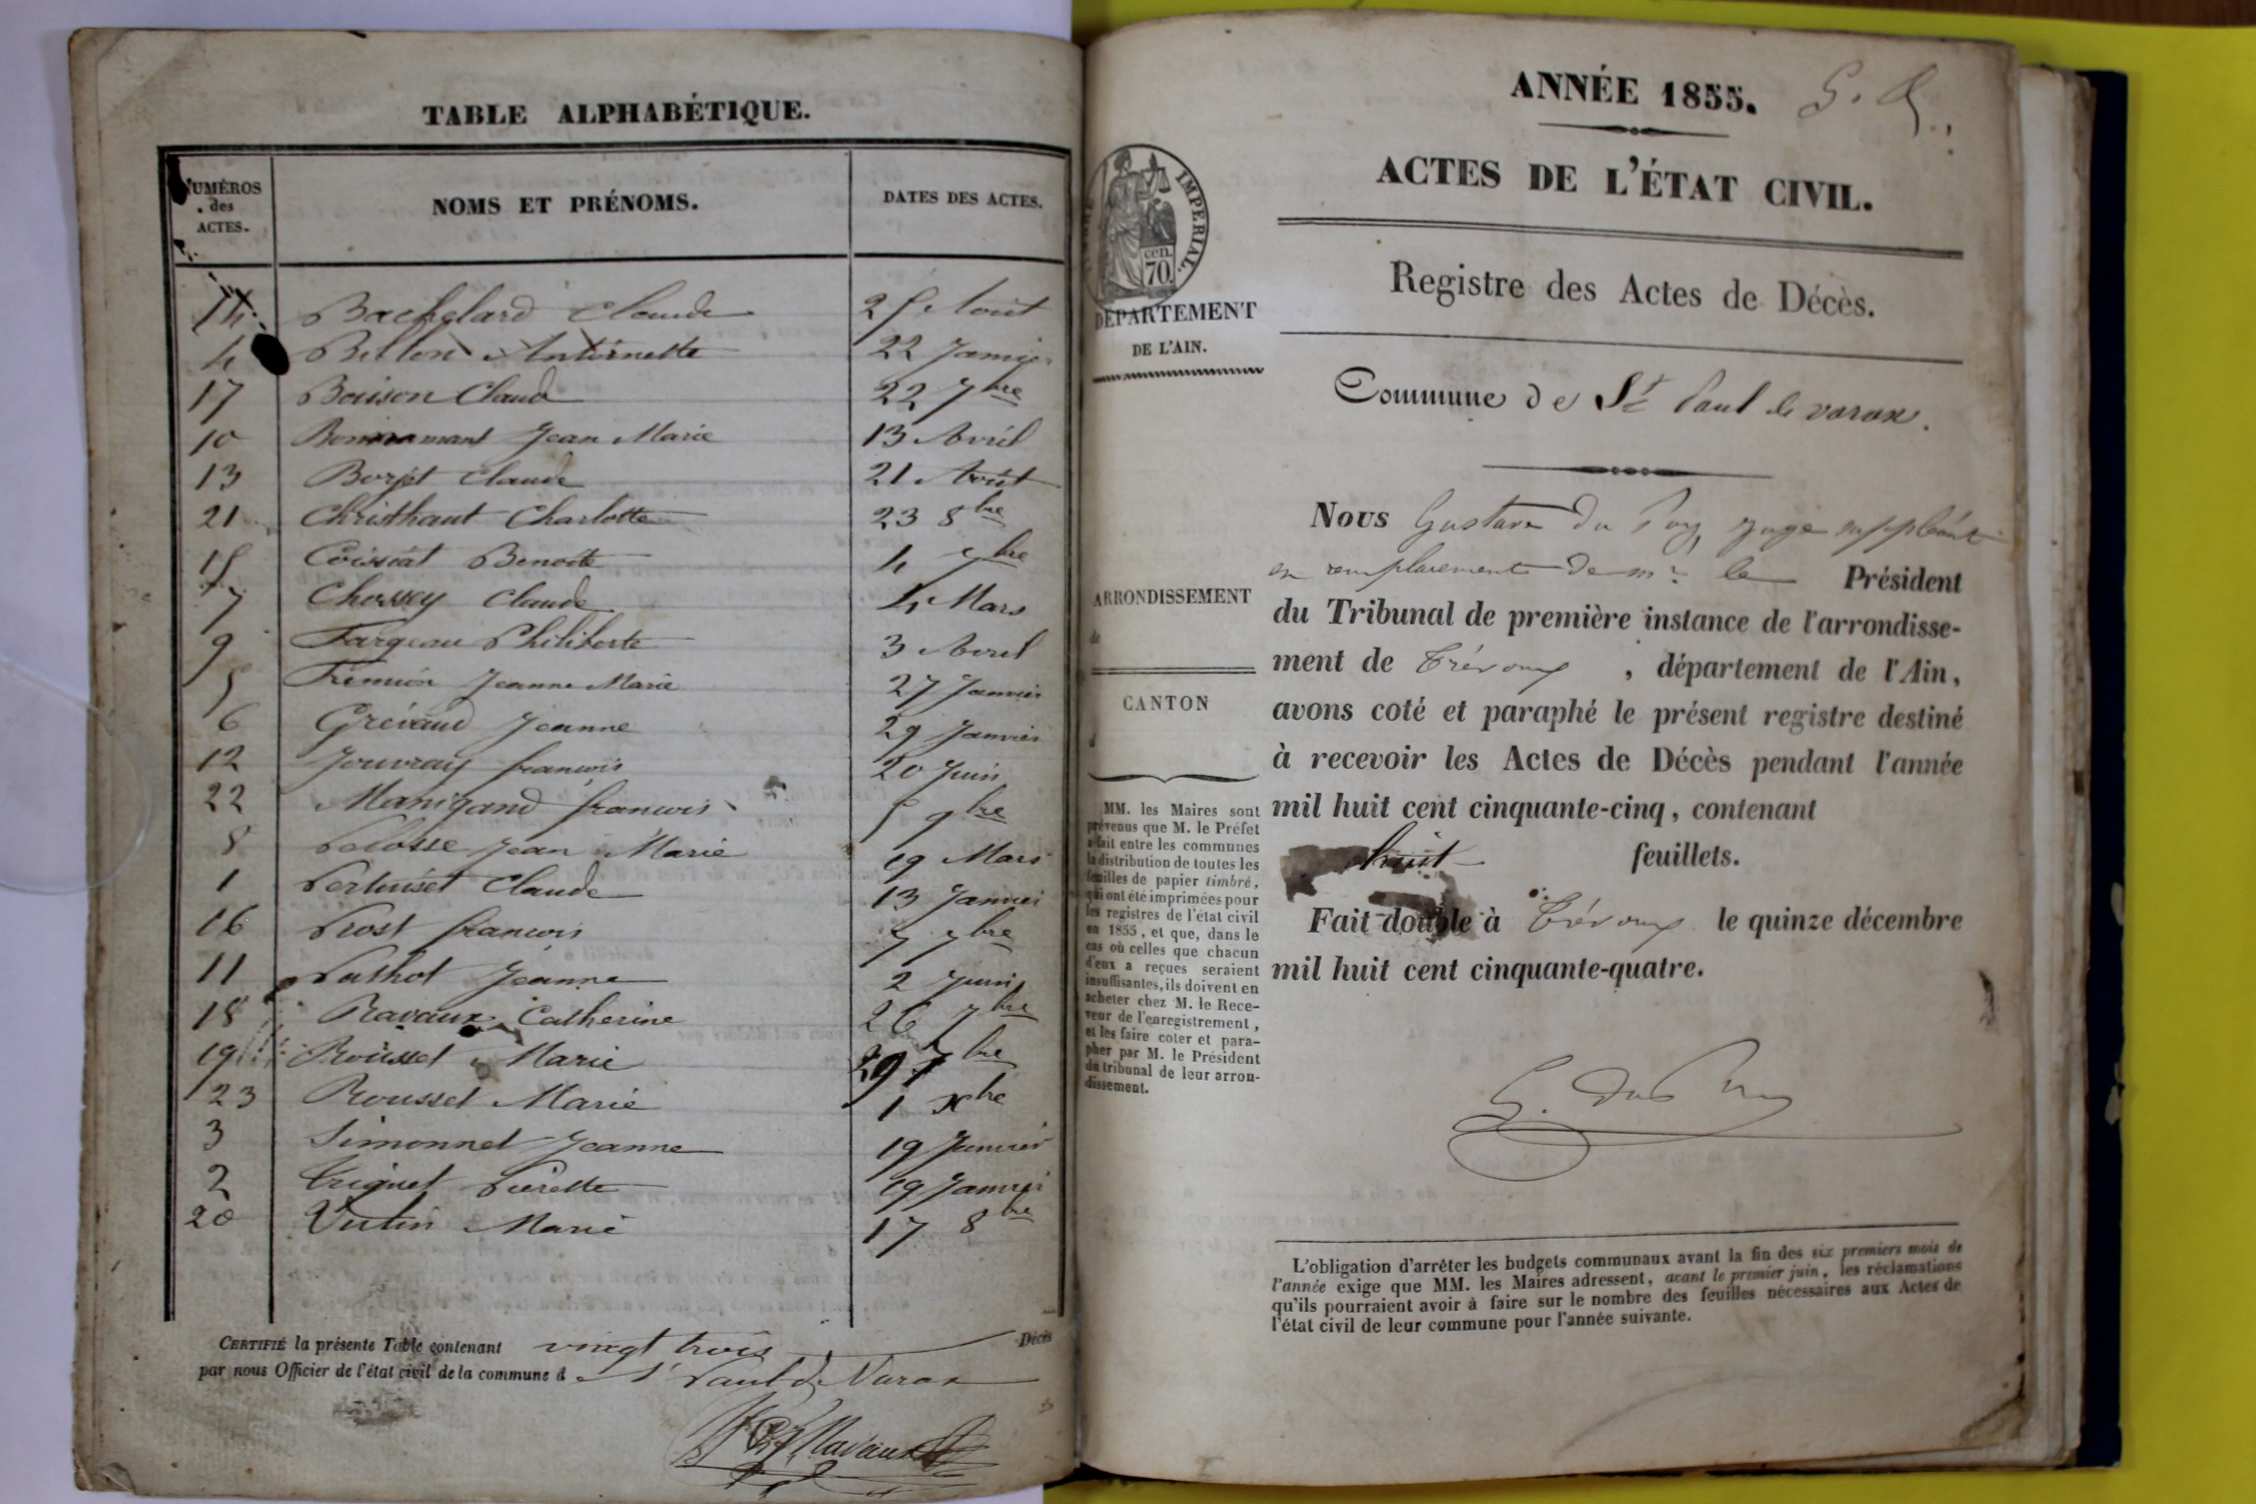 TABLE ALPHABÉTIQUE.
NUMÉROS des ACTES. NOMS ET PRÉNOMS. DATES DES ACTES.
14 Bachelard Claude 25 Août
4 Billon Antoinette 22 Janvier
17 Bouison Claude 22 7bre
10 Bonnamant Jean Marie 13 Avril
13 Borjet Claude 21 Août
21 Christhaut Charlotte 23 8bre
15 Coissiat Benoite 4 7bre
7 Chossey Claude 4 Mars
9 Fargeau Philiberte 3 Avril
5 Frémion Jeanne Marie 27 Janvier
6 Grévaud Jeanne 29 Janvier
12 Jouvray francois 20 Juin
22 Manigand francois 5 9bre
8 Pelosse Jean Marie 19 Mars
1 Pertuiset Claude 13 Janvier
16 Prost francois 7 7bre
11 Puthot Jeanne 2 Juin
18 Ravaux Catherine 26 7bre
19 Rousset Marie 29 7bre
23 Rousset Marie 1 Xbre
3 Simonnet Jeanne 19 Janvier
2 Triquet Pierette 19 Janvier
20 Vutin Marie 17 8bre
CERTIFIÉ la présente Table contenant vingt trois Décès
par nous Officier de l'état civil de la commune d St Paul de Varax
Ravaux
ANNÉE 1855.
ACTES DE L'ÉTAT CIVIL.
TIMBRE IMPERIAL.
cen.
70
Registre des Actes de Décès.
DÉPARTEMENT
DE L'AIN.
Commune de St Paul de varax.
Nous Gustave Du Puy, juge suppléant
en remplacement de mr le Président
du Tribunal de première instance de l'arrondisse-
ment de Trévoux, département de l'Ain,
avons coté et paraphé le présent registre destiné
à recevoir les Actes de Décès pendant l'année
mil huit cent cinquante-cinq, contenant
huit feuillets.
Fait double à Trévoux le quinze décembre
mil huit cent cinquante-quatre.
G. Du Puy
ARRONDISSEMENT
de
CANTON
d
MM. les Maires sont
prévenus que M. le Préfet
a fait entre les communes
la distribution de toutes les
feuilles de papier timbré,
qui ont été imprimées pour
les registres de l'état civil
en 1855, et que, dans le
cas où celles que chacun
d'eux a reçues seraient
insuffisantes, ils doivent en
acheter chez M. le Rece-
veur de l'enregistrement,
et les faire coter et para-
pher par M. le Président
du tribunal de leur arron-
dissement.
L'obligation d'arrêter les budgets communaux avant la fin des six premiers mois de
l'année exige que MM. les Maires adressent, avant le premier juin, les réclamations
qu'ils pourraient avoir à faire sur le nombre des feuilles nécessaires aux Actes de
l'état civil de leur commune pour l'année suivante.